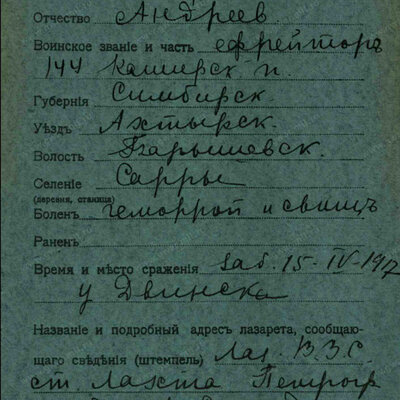 Отчество Андреев.
Воинское званіе и часть ефрейторъ
144 Каширск п.
Губернія Симбирск
Уѣздъ Ахтырск.
Волость Барышевск.
Селеніе Сарры
(деревня, станица)
Боленъ геморрой и свищъ
Раненъ
Время и мѣсто сраженія Заб. 15-IV-917
у Двинска
Названіе и подробный адресъ лазарета, сообщаю-
щаго свѣдѣнія (штемпель) Лаз. В.З.С.
ст. Лахта Петрогр